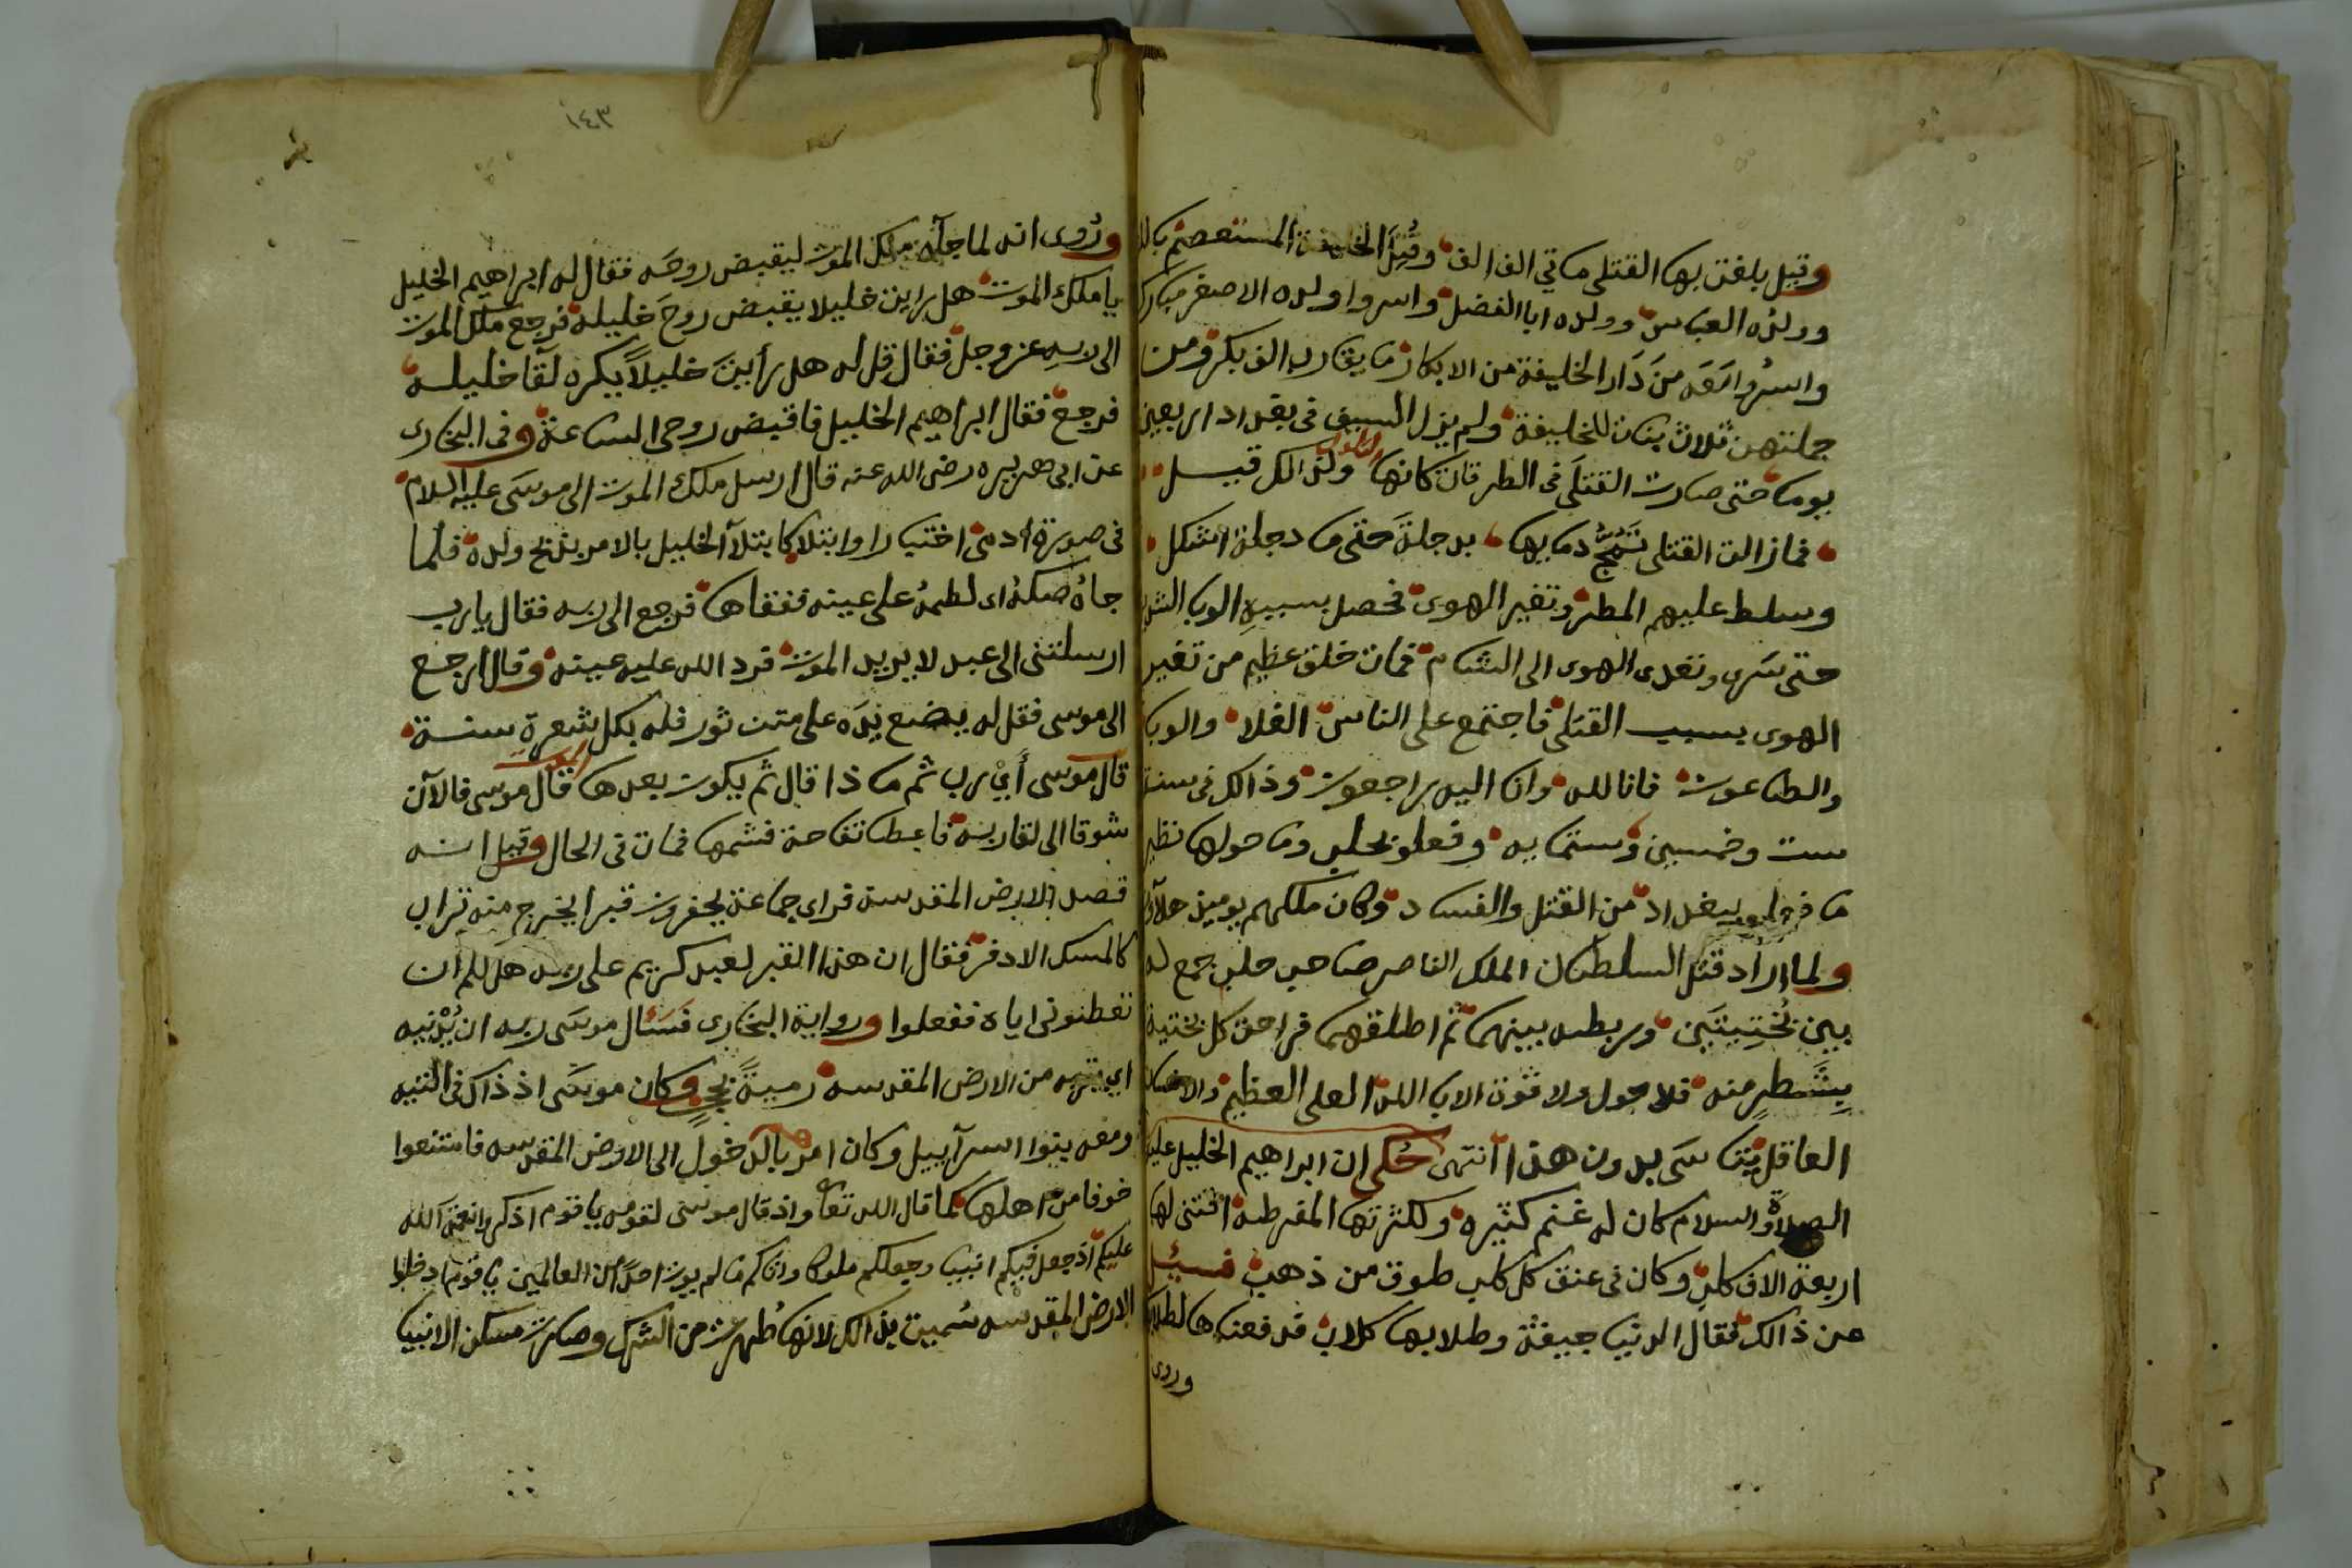 وقيل بلغت بها القتلى مائتي الف الف وقُتِلَ الخليفة المستعصم بالله
وولده العباس وولده ابا الفضل واسروا ولده الاصغر مبارك
واسرُوا مَعَه من دَار الخليفة من الابكار ما يقارب الف بكر ومن
جملتهن ثلاث بنات للخليفة ولم يزل السيف فى بغداد اربعين
يوما حتى صارت القتلَى فى الطرقات كانها التلول ولذالك قيل
فمازالت القتلى تَمُجُّ دمايها بدجلة حَتى ما دجلة اشكل
وسلط عليهم المطر وتغير الهوى فحصل بسببه الوبا الشديد
حتى سَرى وتعدى الهوى الى الشام فمات خلق عظيم من تغير
الهوى بسبب القتلى فاجتمع على الناس الغلا والوبا
والطاعون فانا لله وانا اليه راجعون وذالك فى سنة
ست وخمسين وستمايه وفعلو بحلب وما حولها نظير
ما فعلو ببغداد من القتل والفساد وكان ملكهم يوميذ هلآكو
ولما اراد قتل السلطان الملك الناصر صاحب حلب جمع له
بين بُختِيتَين وربطه بينهما ثم اطلقهما فراحت كل بختية
بِشَطرٍ منه فلا حول ولا قوة الا بالله العلى العظيم والانسان
العاقل يتاسَى بدون هذا انتهى حُكى ان ابراهيم الخليل عليه
الصلاة والسلام كان له غنم كثيره ولكثرتها المفرطه اقتنى لها
اربعة الاف كلب وكان فى عنق كل كلب طوق من ذهب فسئل
عن ذالك فقال الدنيا جيفة وطلابها كلاب فدفعتها لطلابها
وروى
١٤٣
ورُوى انه لما جآه ملك الموت ليقبض روحَه فقال له ابراهيم الخليل
يا ملك الموت هل رايت خليلا يقبض روحَ خليله فرجع ملك الموت
الى ربه عز وجل فقال قل له هل رأيتَ خليلاً يكره لقآ خليله
فرجع فقال ابراهيم الخليل فاقبض روحى الساعة وفى البخارى
عن ابى هريره رضى الله عنه قال ارسل ملك الموت الى موسَى عليه السلام
فى صورة ادمى اختيارا وابتلا كابتلآ الخليل بالامر بذبح ولده فلما
جاهُ صكهُ اى لطمهُ على عينه ففقاها فرجع الى ربه فقال يارب
ارسلتنى الى عبد لا يريد الموت فرد الله عليه عينه وقال ارجع
الى موسى فقل له يضع يَدَه على متن ثور فله بكل شعرة سنة
قال موسى أَيْ رب ثم ما ذا قال ثم يكون بعدها الموت قال موسى فالآن
شوقا الى لقا ربه فاعطا تفاحة فشمها فمات فى الحال وقيل انه
قصد الارض المقدسة فراى جماعة يحفرون قبرا يخرج منه تراب
كالمسك الادفر فقال ان هذا القبر لعبد كريم على ربه هل لكم ان
تعطونى اياه ففعلوا ورواية البخارى فَسَئال موسَى ربه ان يُدْنيه
اي يقربه من الارض المقدسه رميةً بحجرٍ وكان موسَى اذ ذاك فى التيه
ومعه بنوا اسرآييل وكان امرهم بالدخولِ الى الارض المقدسه فامتنعوا
خوفا من اهلها كما قال الله تعا واذ قال موسى لقومه يا قوم اذكروا نعمة الله
عليكم اذ جعل فيكم انبيا وجعلكم ملوكا واتاكم ما لم يوت احدًا من العالمين يا قوم ادخلوا
الارض المقدسه سُميت بذالك لانها طُهرت من الشرك وصارت مسكن الانبيا